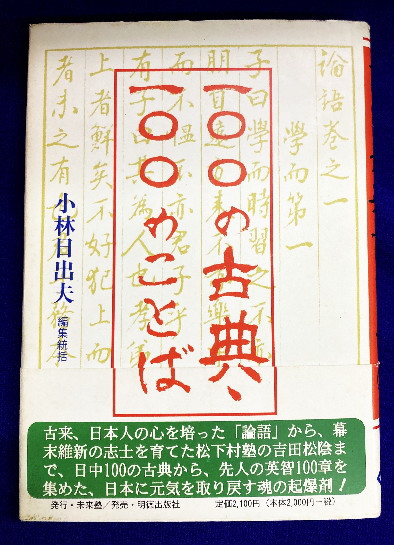 論語巻之一
學而第一
子曰學而時習之不
而不慍不亦君子乎
有子曰其為人也孝弟
上者鮮矣不好犯上而
者未之有
一〇〇の古典、
一〇〇のことば
小林日出夫
編集統括
古来、日本人の心を培った「論語」から、幕
末維新の志士を育てた松下村塾の吉田松陰ま
で、日中100の古典から、先人の英智100章を
集めた、日本に元気を取り戻す魂の起爆剤！
発行・未来塾／発売・明徳出版社
定価2,100円（本体2,000円＋税）